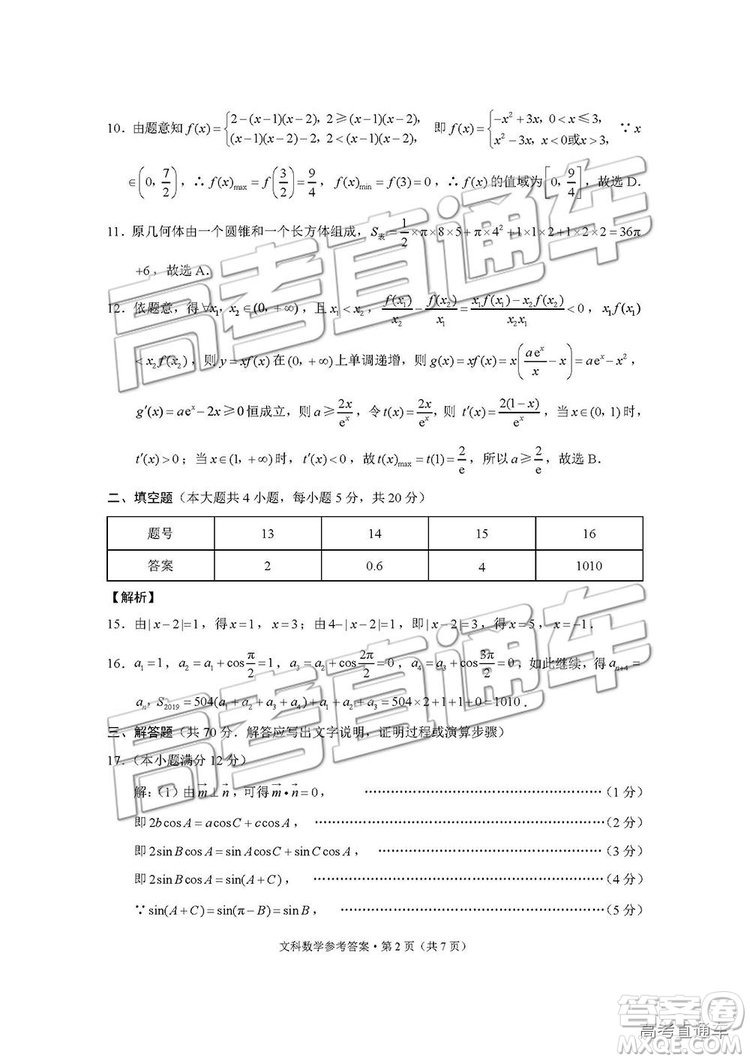 10.由题意知 f(x)={2-(x-1)(x-2), 2≥(x-1)(x-2), (x-1)(x-2)-2, 2<(x-1)(x-2), 即 f(x)={-x²+3x, 0<x≤3, x²-3x, x<0或x>3, ∵x
∈(0, 7/2), ∴f(x)max=f(3/2)=9/4, f(x)min=f(3)=0, ∴f(x)的值域为[0, 9/4], 故选D.
11.原几何体由一个圆锥和一个长方体组成, S表=1/2×π×8×5+π×4²+1×1×2+1×2×2=36π
+6, 故选A.
12.依题意, 得∀x₁, x₂∈(0, +∞), 且x₁<x₂, f(x₁)/x₂-f(x₂)/x₁=(x₁f(x₁)-x₂f(x₂))/(x₂x₁)<0, x₁f(x₁)
<x₂f(x₂), 则y=xf(x)在(0, +∞)上单调递增, 则g(x)=xf(x)=x(aeˣ/x-x)=aeˣ-x²,
g′(x)=aeˣ-2x≥0恒成立, 则a≥2x/eˣ, 令t(x)=2x/eˣ, 则 t′(x)=2(1-x)/eˣ, 当x∈(0, 1)时,
t′(x)>0; 当x∈(1, +∞)时, t′(x)<0, 故t(x)max=t(1)=2/e, 所以a≥2/e, 故选B.
二、填空题(本大题共4小题, 每小题5分, 共20分)
题号 13 14 15 16
答案 2 0.6 4 1010
【解析】
15.由|x-2|=1, 得x=1, x=3; 由4-|x-2|=1, 即|x-2|=3, 得x=5, x=-1.
16.a₁=1, a₂=a₁+cos π/2=1, a₃=a₂+cos 2π/2=0, a₄=a₃+cos 3π/2=0, 如此继续, 得aₙ₊₄=
aₙ, S₂₀₁₉=504(a₁+a₂+a₃+a₄)+a₁+a₂+a₃=504×2+1+1+0=1010.
三、解答题(共70分. 解答应写出文字说明, 证明过程或演算步骤)
17.(本小题满分12分)
解:(1)由m⊥n, 可得m•n=0, ……(1分)
即2bcosA=acosC+ccosA, ……(2分)
即2sinBcosA=sinAcosC+sinCcosA, ……(3分)
即2sinBcosA=sin(A+C), ……(4分)
∵sin(A+C)=sin(π-B)=sinB, ……(5分)
文科数学参考答案·第2页(共7页)
高考直通车
高考直通车
答案圈
高考直通车
MXQE.COM